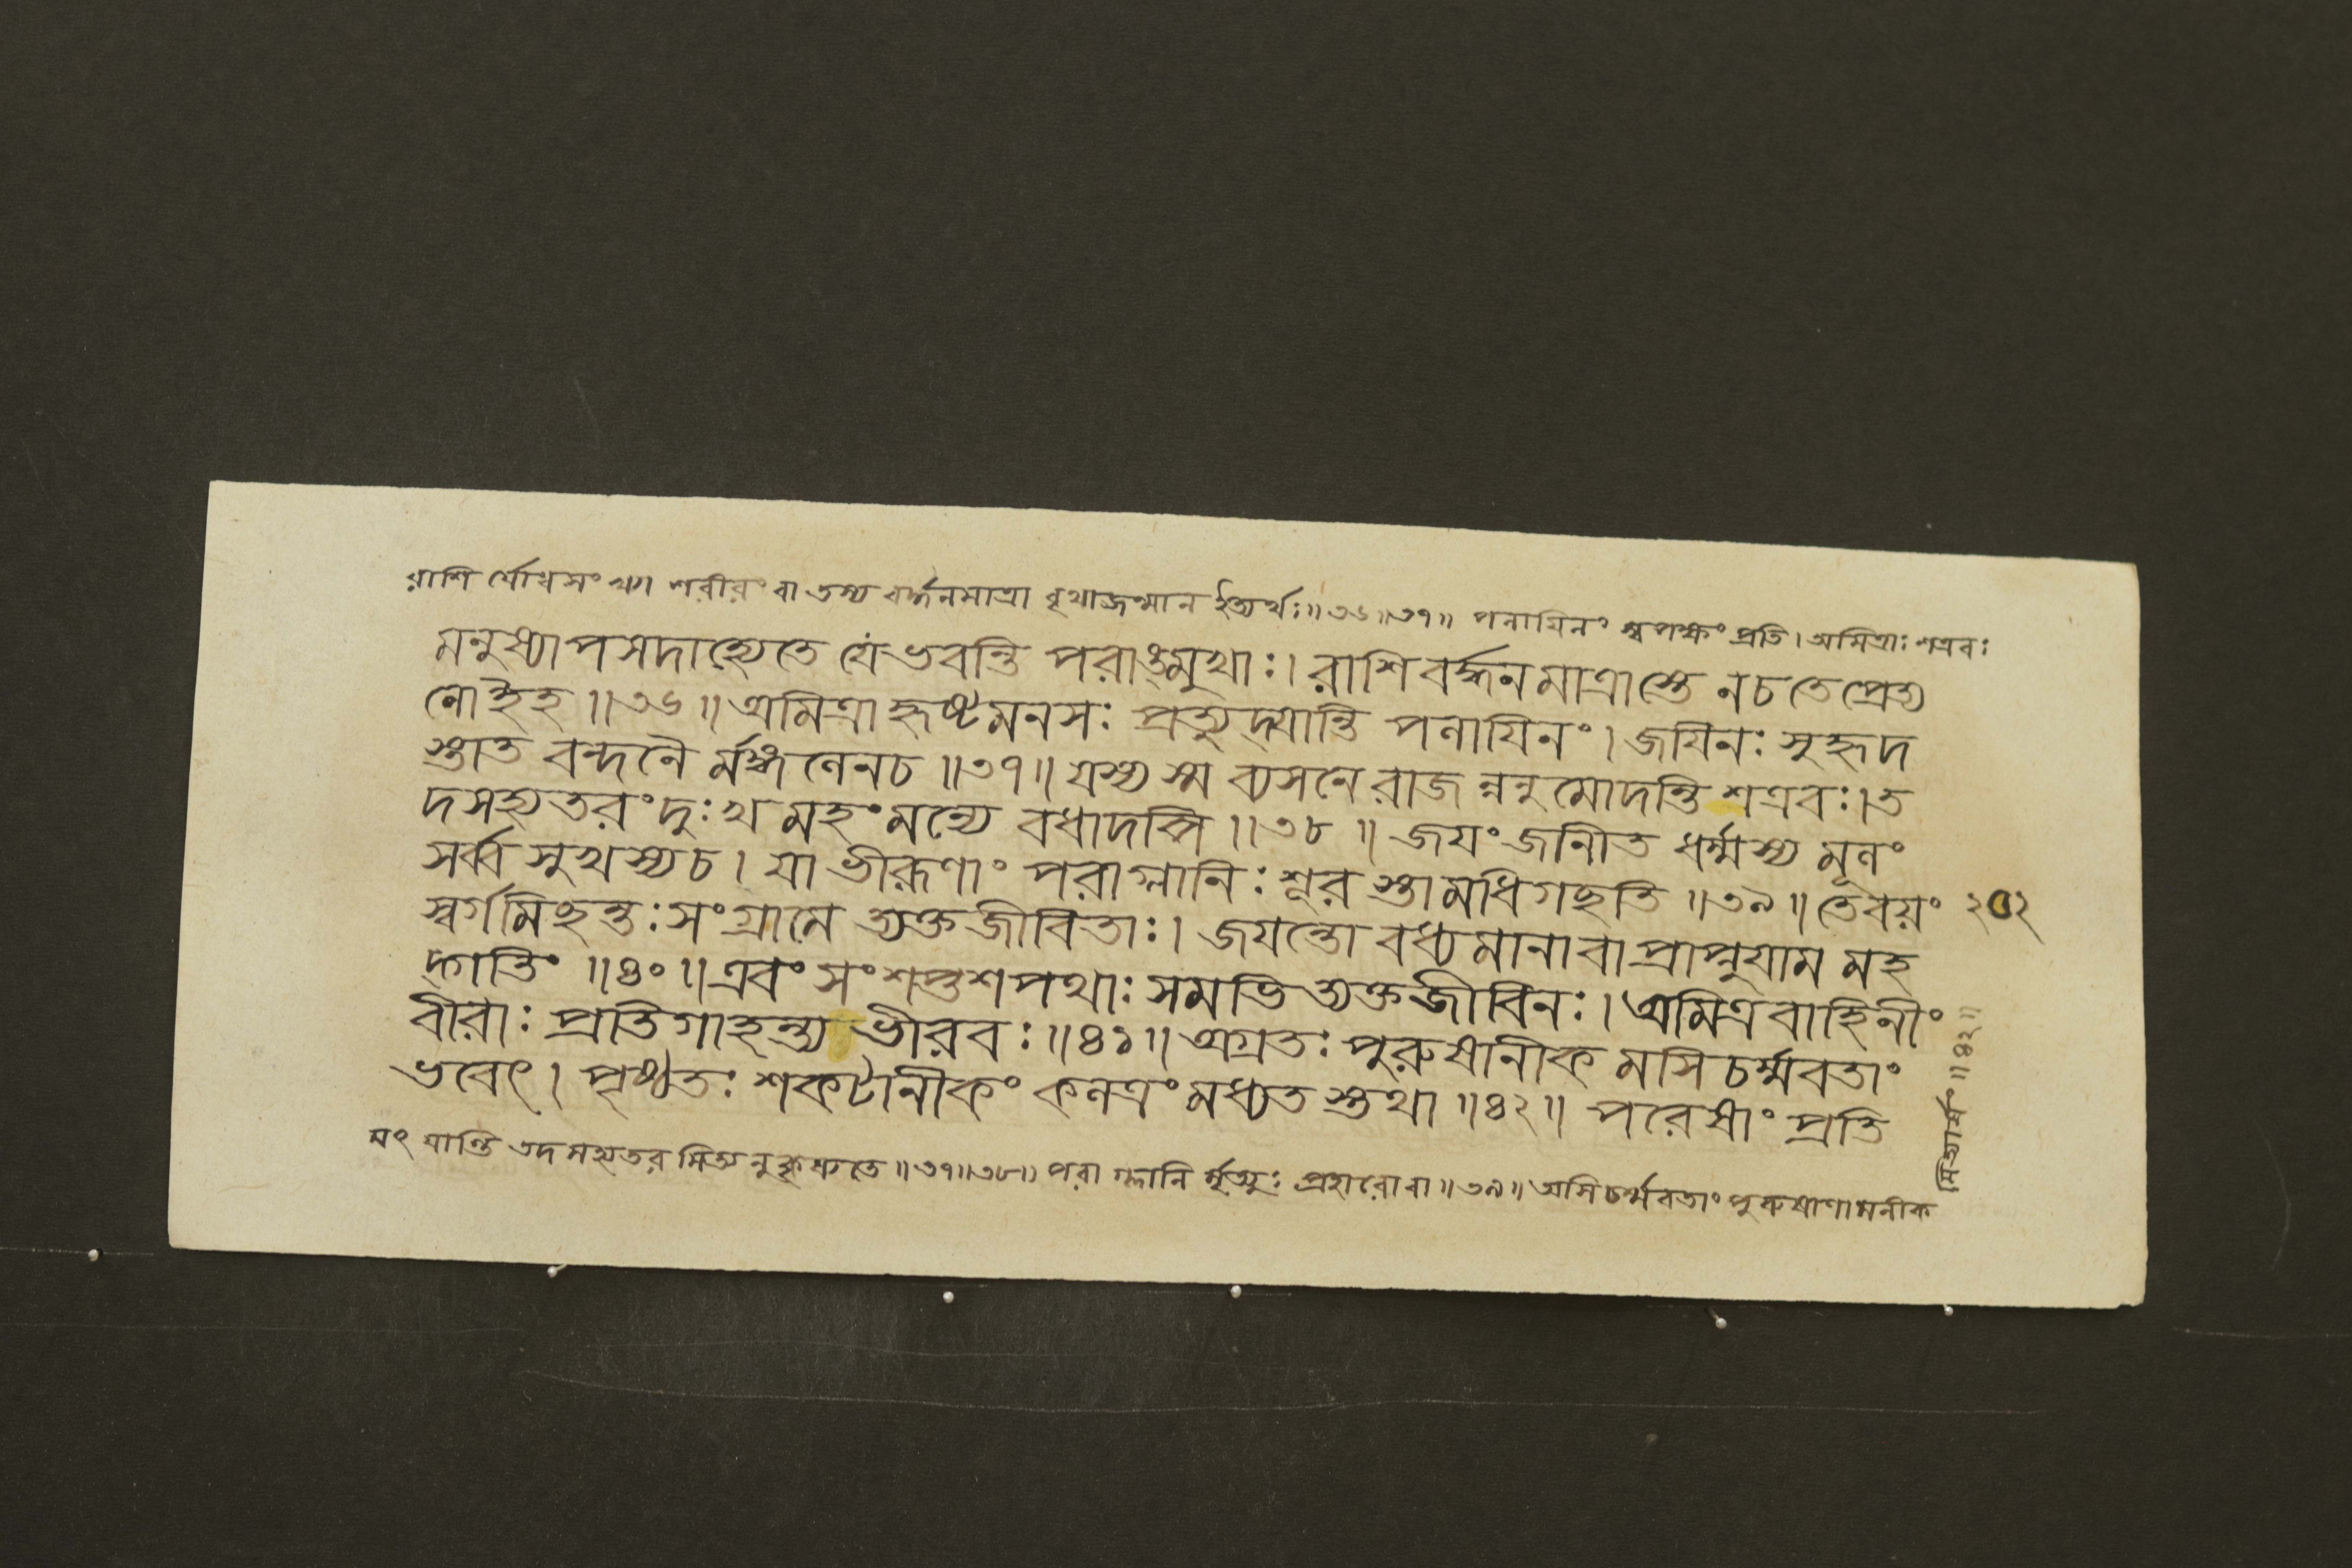 রাশি র্যোধসংখ্যা শরীরং বা তস্য বর্দ্ধনমাত্রা বৃথাজন্মান ইত্যর্থঃ॥৩৬॥৩৭॥ পলাযিনং স্বপক্ষং প্রতি। অমিত্রাঃ শত্রবঃ
মনুষ্যাপসদাহ্যেতে যে ভবন্তি পরাঙ্মুখাঃ। রাশিবর্দ্ধনমাত্রাস্তে নচতেপ্রেত্য
নোইহ॥৩৬॥ অমিত্রাহৃষ্টমনসঃ প্রত্যুদ্যান্তি পলাযিনং। জযিনঃ সুহৃদ
স্তাত বন্দনৈ র্মঙ্গলেনচ॥৩৭॥ যস্য স্ম ব্যসনে রাজ ন্ননুমোদন্তি শত্রবঃ। ত
দসহ্যতরংদুঃখ মহংমন্যে বধাদপি॥৩৮॥ জযং জানীত ধর্ম্মস্য মূলং
সর্ব্ব সুখস্যচ। যা ভীরূণাং পরাগ্লানিঃ শূর স্তামধিগছতি॥৩৯॥ তেবয়ং
২০২
স্বর্গমিছন্তঃ সংগ্রামে ত্যক্তজীবিতাঃ। জযন্তো বধ্যমানাবা প্রাপ্নুযাম মহ
দ্গতিং॥৪০॥ এবং সংশপ্তশপথাঃ সমভিত্যক্তজীবিনঃ। অমিত্রবাহিনীং
বীরাঃ প্রতিগাহন্ত্য ভীরবঃ॥৪১॥ অগ্রতঃ পুরুষানীক মসিচর্ম্মবতাং
ভবেৎ। পৃষ্ঠতঃ শকটানীকং কলত্রং মধ্যত স্তথা॥৪২॥ পরেষাং প্রতি
যং যান্তি তদসহ্যতর মিত্যনুকৃষ্যতে॥৩৭॥৩৮॥ পরা গ্লানি র্মৃত্যুঃ প্রহারোবা॥৩৯॥ অসিচর্ম্মবতাং পুরুষাণামনীক
মিত্যর্থঃ॥৪২॥